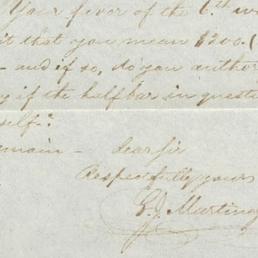 Your favor of the 6th
it that you mean $200.(
- and if so, do you author
if the half bar in quest
self?
remain - Dear Sir
Respectfully yours